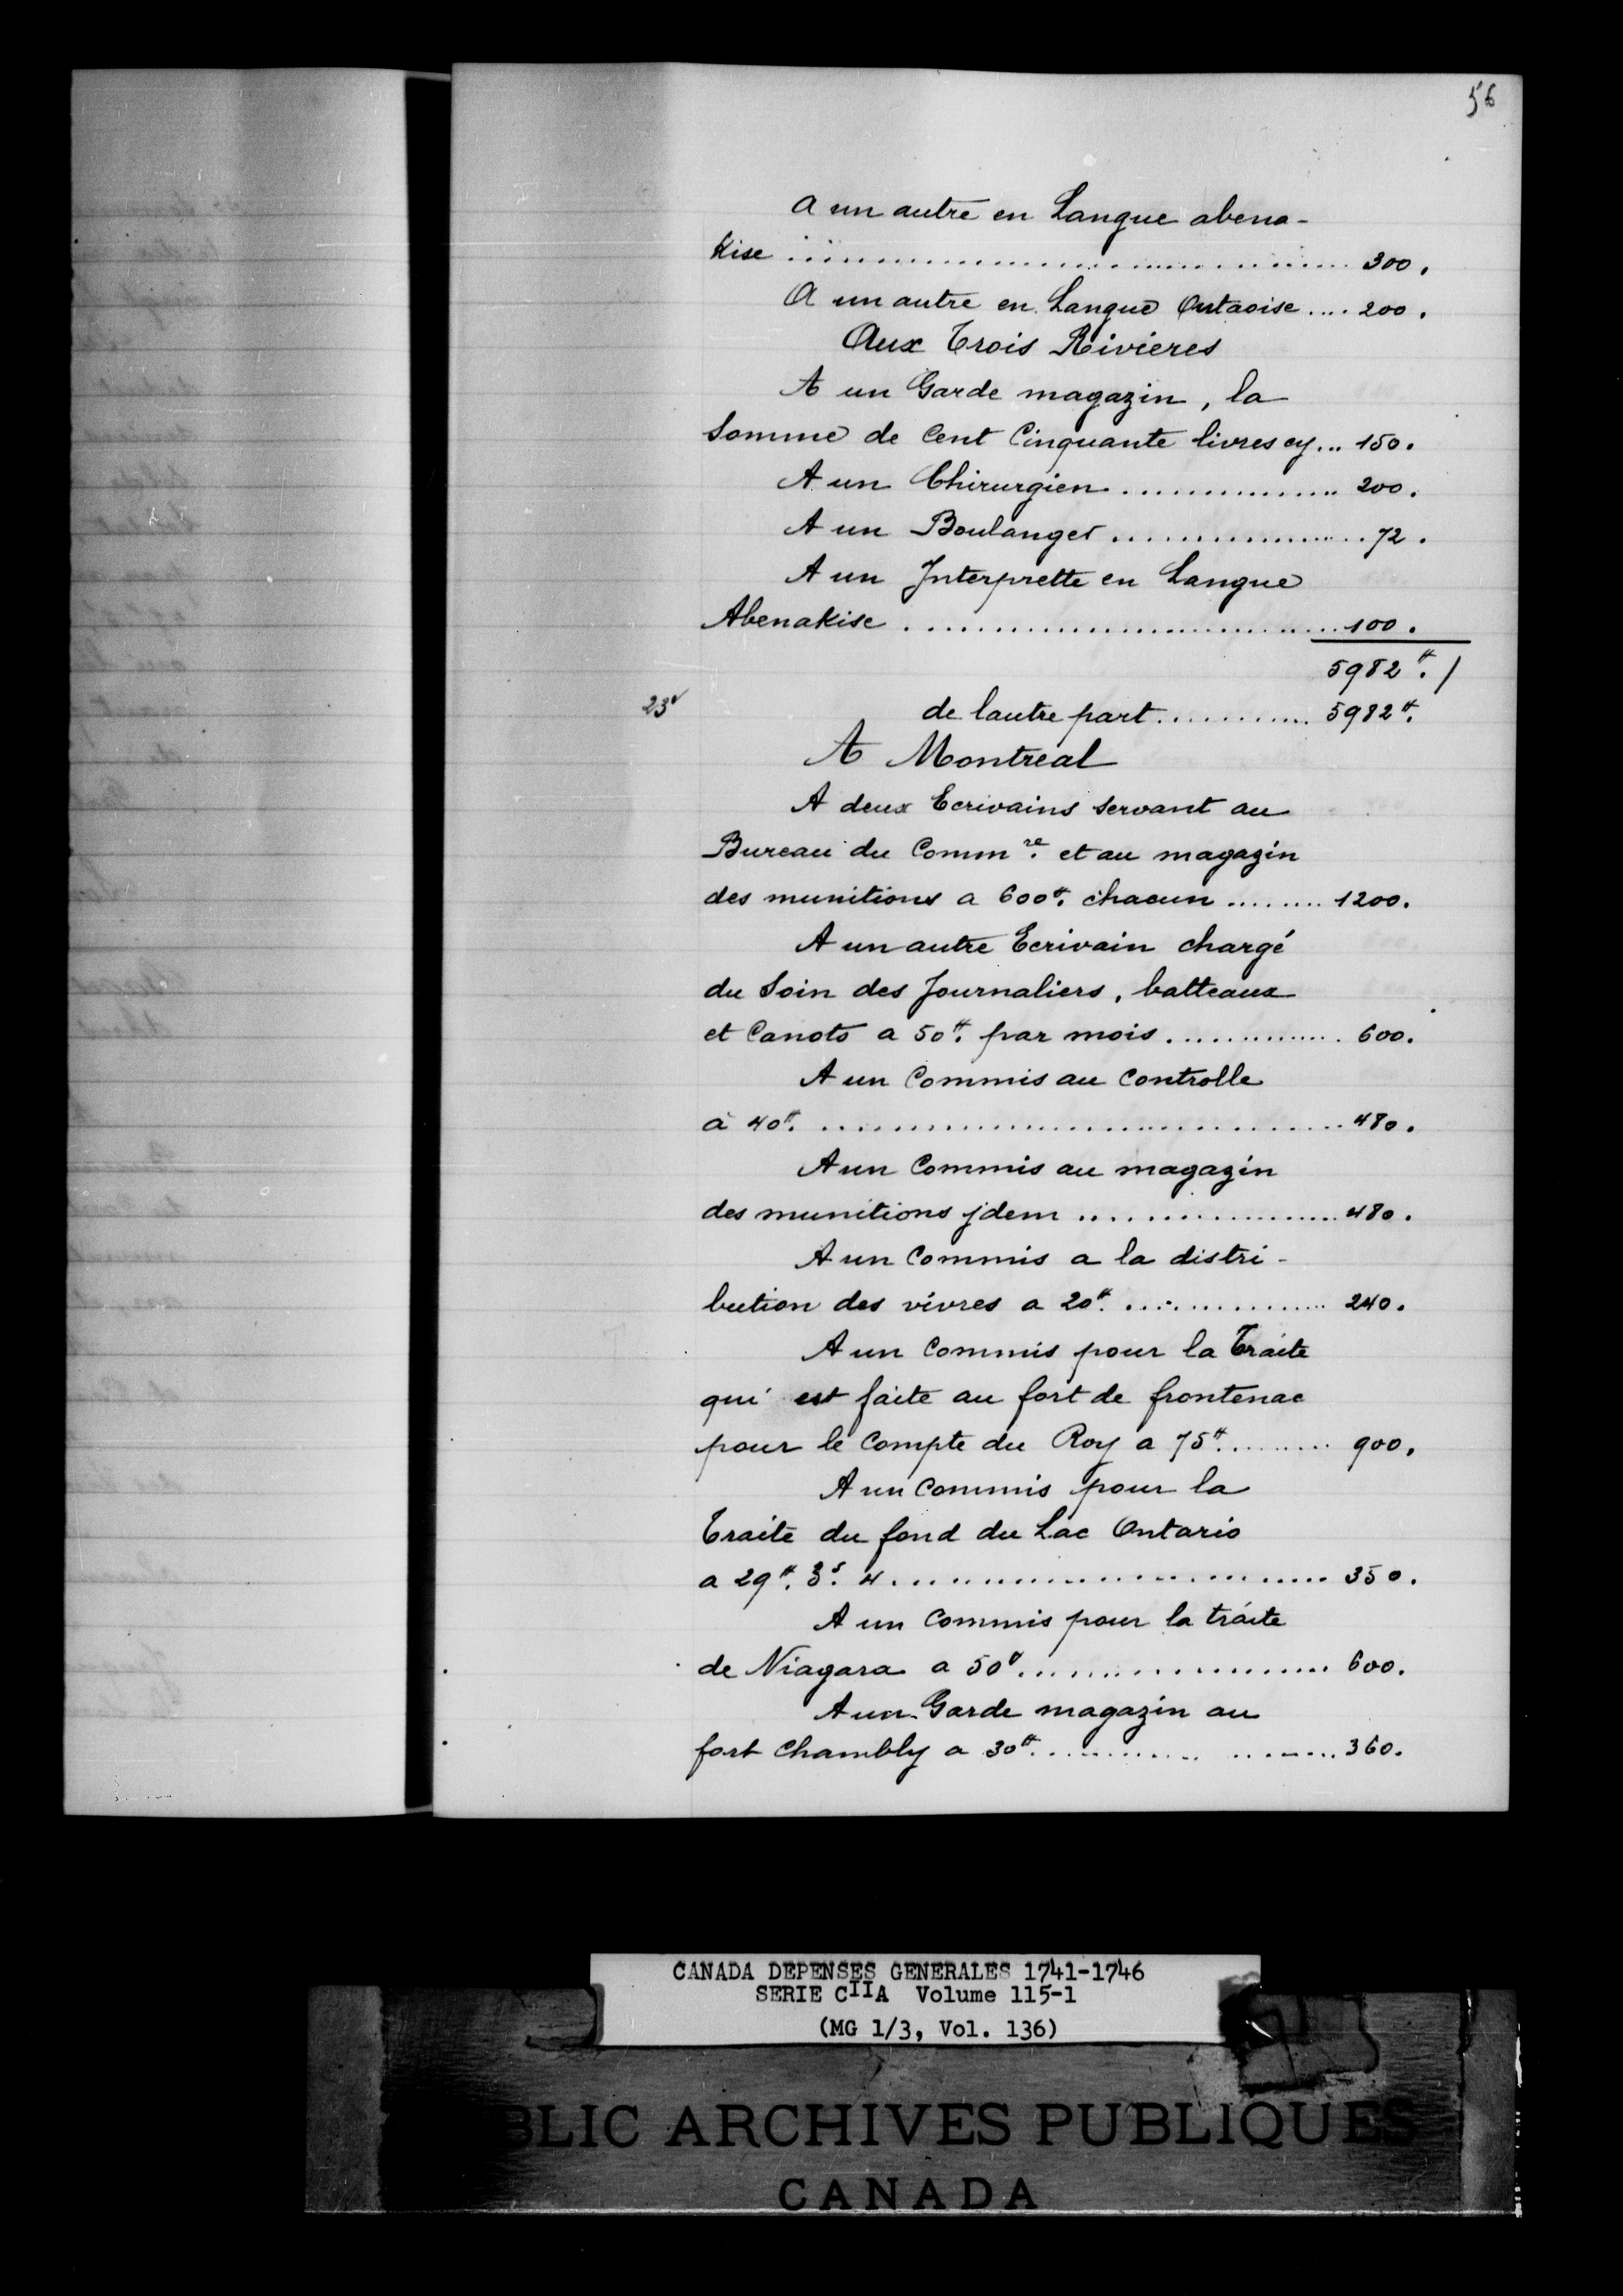 56
A un autre en Langue abena-
Kise .......................................... 300.
A un autre en Langue Outaoise .... 200.
Aux Trois Rivieres
A un Garde magazin, la
Somme de Cent Cinquante livres cy... 150.
A un Chirurgien ................ 200.
A un Boulanger ................... 72.
A un Interprette en Langue
Abenakise ............................... 100.
5982 ₶. /
23v de lautre part ............ 5982 ₶.
A Montreal
A deux Ecrivains Servant au
Bureau du Commre. et au magazin
des munitions a 600₶. chacun ........ 1200.
A un autre Ecrivain chargé
du Soin des Journaliers, batteaux
et Canots a 50₶. par mois .............. 600.
A un Commis au Controlle
à 40₶. ........................................ 480.
A un Commis au magazin
des munitions jdem .................... 480.
A un Commis a la distri-
bution des vivres a 20₶. ................ 240.
A un Commis pour la Traite
qui est faite au fort de frontenac
pour le Compte du Roy a 75₶. ......... 900.
A un Commis pour la
Traite du fond du Lac Ontario
a 29₶. 3s. 4 ................................. 350.
A un Commis pour la traite
de Niagara a 50₶. ...................... 600.
A un Garde magazin au
fort Chambly a 30₶. ...................... 360.
CANADA DEPENSES GENERALES 1741-1746
SERIE CIIA Volume 115-1
(MG 1/3, Vol. 136)
BLIC ARCHIVES PUBLIQUES
CANADA